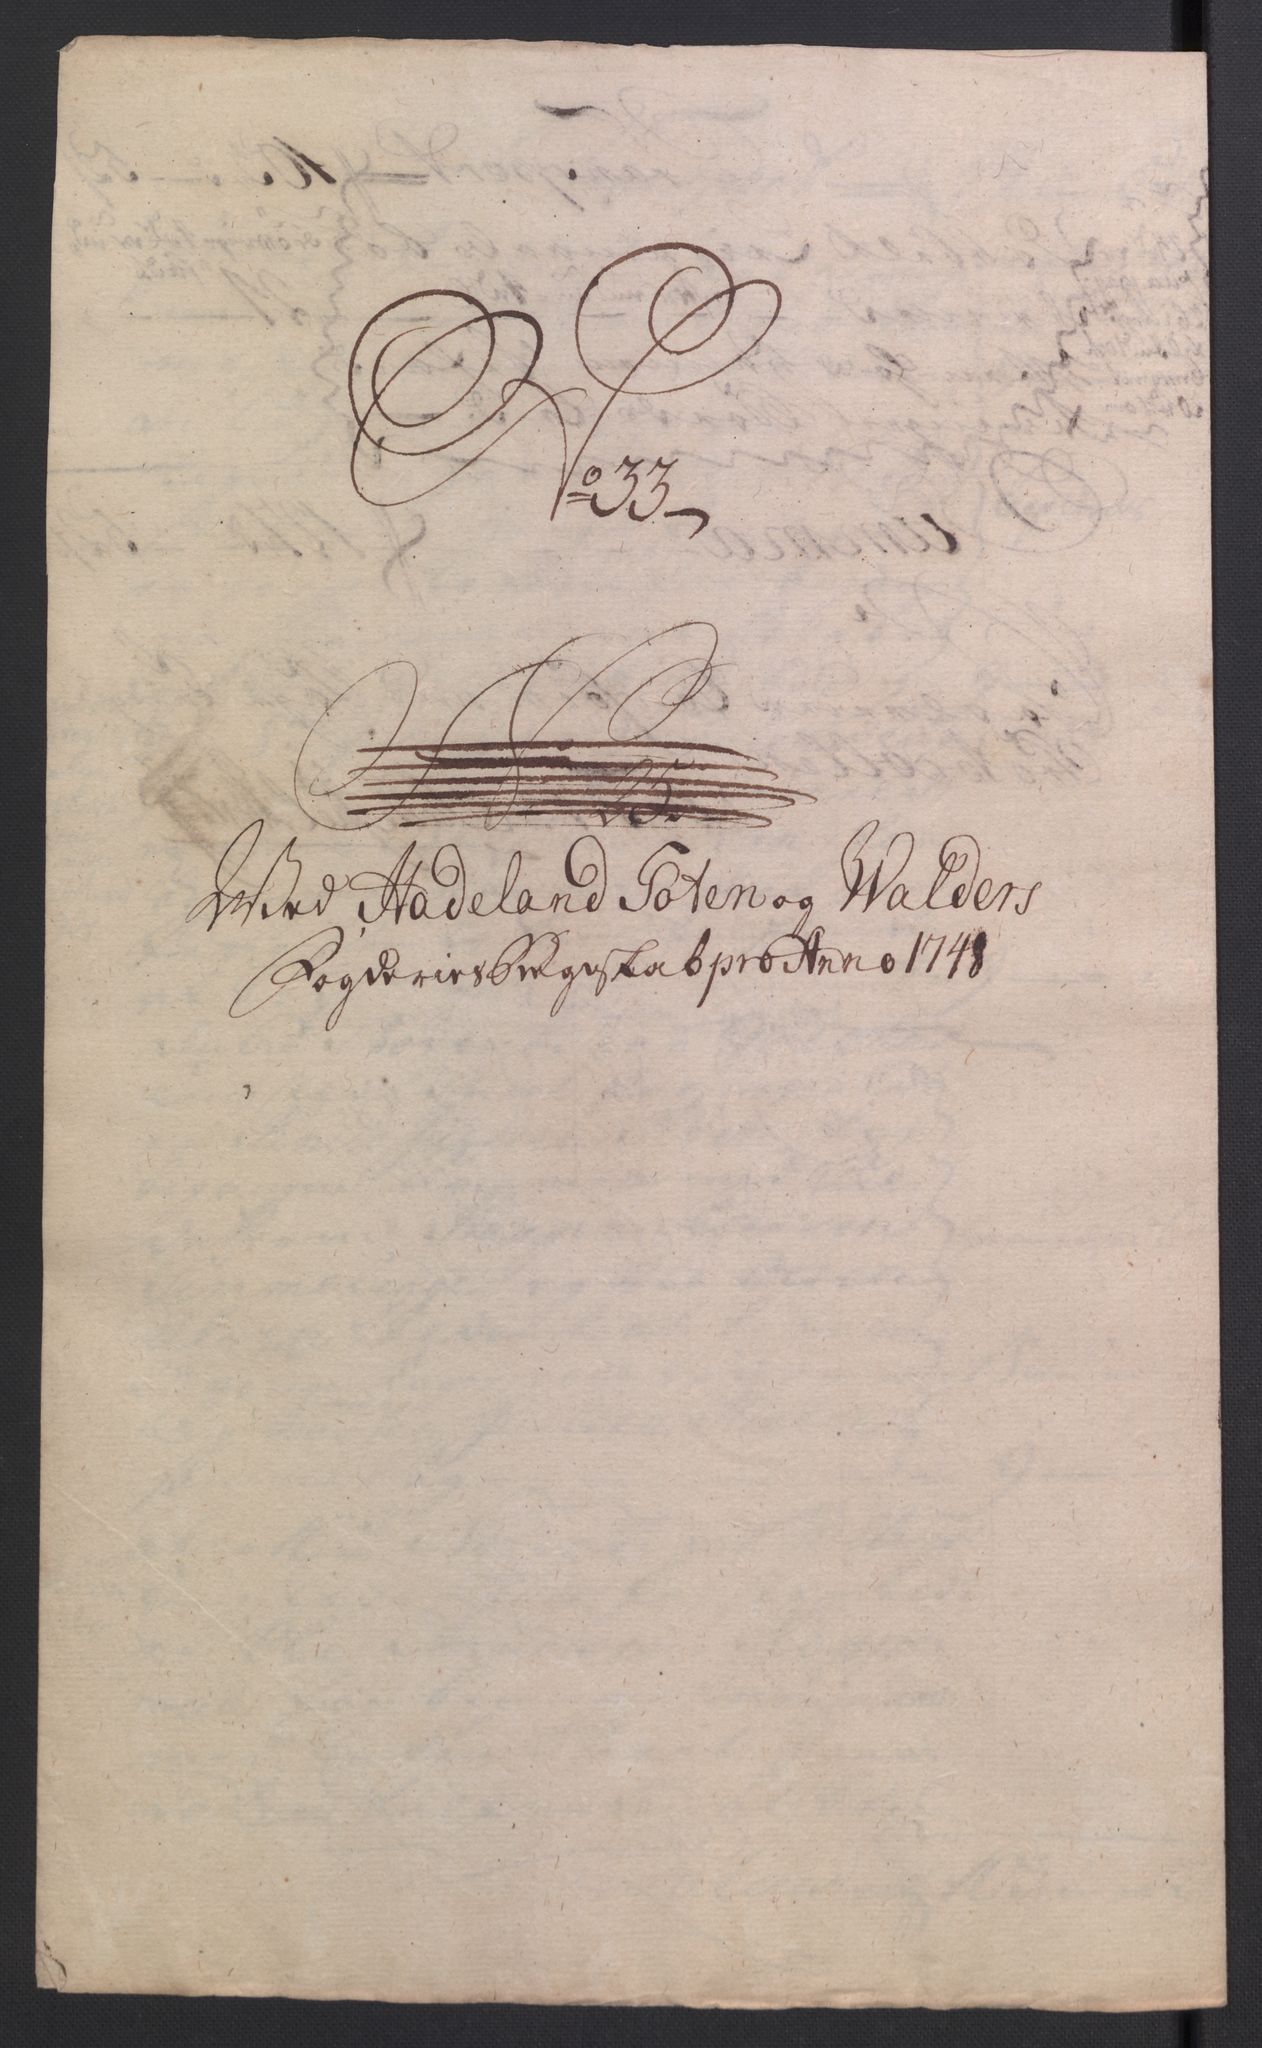 No 33
Wed Hadeland Toten og Walders
Fogderies Regnskab pro Anno 1748